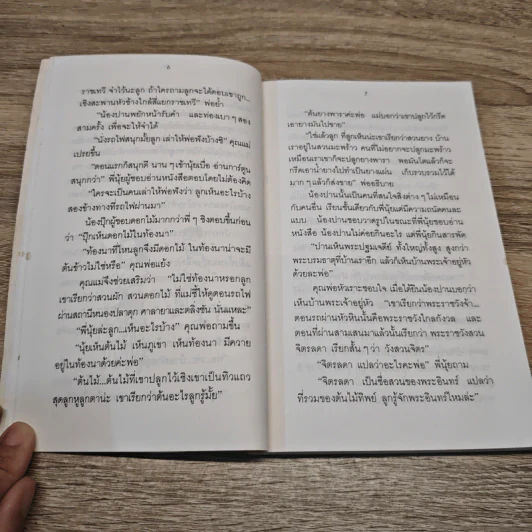 ราชเทวี จำไว้นะลูก ถ้าใครถามลูกจะได้ตอบเขาถูก...
เชิงสะพานหัวช้างใกล้สี่แยกราชเทวี” พ่อย้ำ
“น้องปานพยักหน้ารับคำ และท่องเบา ๆ สอง
สามครั้ง เพื่อจะให้จำได้
“นั่งรถไฟสนุกมั้ยลูก เล่าให้พ่อฟังบ้างซิ” คุณแม่
เปรยขึ้น
“ตอนแรกก็สนุกดี นาน ๆ เข้านุ้ยเบื่อ อ่านการ์ตูน
สนุกกว่า” พี่นุ้ยผู้ชอบอ่านหนังสือตอบโดยไม่ต้องคิด
“ใครจะเป็นคนเล่าให้พ่อฟังว่า ลูกเห็นอะไรบ้าง
สองข้างทางที่รถไฟผ่านมา”
น้องปุ๊กผู้ชอบดอกไม้มากกว่าพี่ ๆ ชิงตอบขึ้นก่อน
ว่า “ปุ๊กเห็นดอกไม้ในท้องนา”
“ท้องนาที่ไหนลูกจึงมีดอกไม้ ในท้องนาน่าจะมี
ต้นข้าวไม่ใช่หรือ” คุณพ่อแย้ง
คุณแม่จึงช่วยเสริมว่า “ไม่ใช่ท้องนาหรอกลูก
เขาเรียกว่าสวนผัก สวนดอกไม้ ที่แม่ชี้ให้ดูตอนรถไฟ
ผ่านสถานีหนองปลาดุก ศาลายาและตลิ่งชัน นั่นแหละ”
“พี่นุ้ยล่ะลูก...เห็นอะไรบ้าง” คุณพ่อถามขึ้น
“นุ้ยเห็นต้นไม้ เห็นภูเขา เห็นท้องนา มีควาย
อยู่ในท้องนาด้วยค่ะพ่อ”
“ต้นไม้...ต้นไม้ที่เขาปลูกไว้เชิงเขาเป็นทิวแถว
สุดลูกหูลูกตาน่ะ เขาเรียกว่าต้นอะไรลูกรู้มั้ย”
“ต้นยางพาราค่ะพ่อ แม่บอกว่าเขาปลูกไว้กรีด
เอายางมันไปขาย”
“ใช่แล้วลูก ที่ลูกเห็นน่ะเขาเรียกว่าสวนยาง บ้าน
เราอยู่ในสวนมะพร้าว คนที่ไม่อยากจะปลูกมะพร้าว
เหมือนเราเขาก็จะปลูกยางพารา พอมันโตแล้วก็จะ
กรีดเอาน้ำยางไปทำเป็นยางแผ่น เก็บรวบรวมไว้ได้
มาก ๆ แล้วก็ส่งขาย” พ่ออธิบาย
น้องปานนั้นเป็นคนที่สนใจสิ่งต่าง ๆ ไม่เหมือน
กับคนอื่น เรียนชั้นเดียวกับพี่นุ้ยแต่มีความถนัดคนละ
แบบ น้องปานชอบวาดรูปในขณะที่พี่นุ้ยชอบอ่าน
หนังสือ น้องปานไม่ค่อยกินอะไร แต่พี่นุ้ยกินสารพัด
“ปานเห็นพระปฐมเจดีย์ ทั้งใหญ่ทั้งสูง สูงกว่า
พระบรมธาตุที่บ้านเราอีก แล้วก็เห็นบ้านพระเจ้าอยู่หัว
ด้วยละพ่อ”
คุณพ่อหัวเราะชอบใจ เมื่อได้ยินน้องปานบอกว่า
เห็นบ้านพระเจ้าอยู่หัว “เขาเรียกว่าพระราชวังจ้า...
ตอนรถผ่านหัวหินนั้นคือพระราชวังไกลกังวล และ
ตอนที่ผ่านสามเสนมาแล้วนั้นเรียกว่า พระราชวังสวน
จิตรลดา เรียกสั้น ๆ ว่า วังสวนจิตร”
“จิตรลดา แปลว่าอะไรคะพ่อ” พี่นุ้ยถาม
“จิตรลดา เป็นชื่อสวนของพระอินทร์ แปลว่า
ที่รวมของต้นไม้ทิพย์ ลูกรู้จักพระอินทร์ไหมล่ะ”